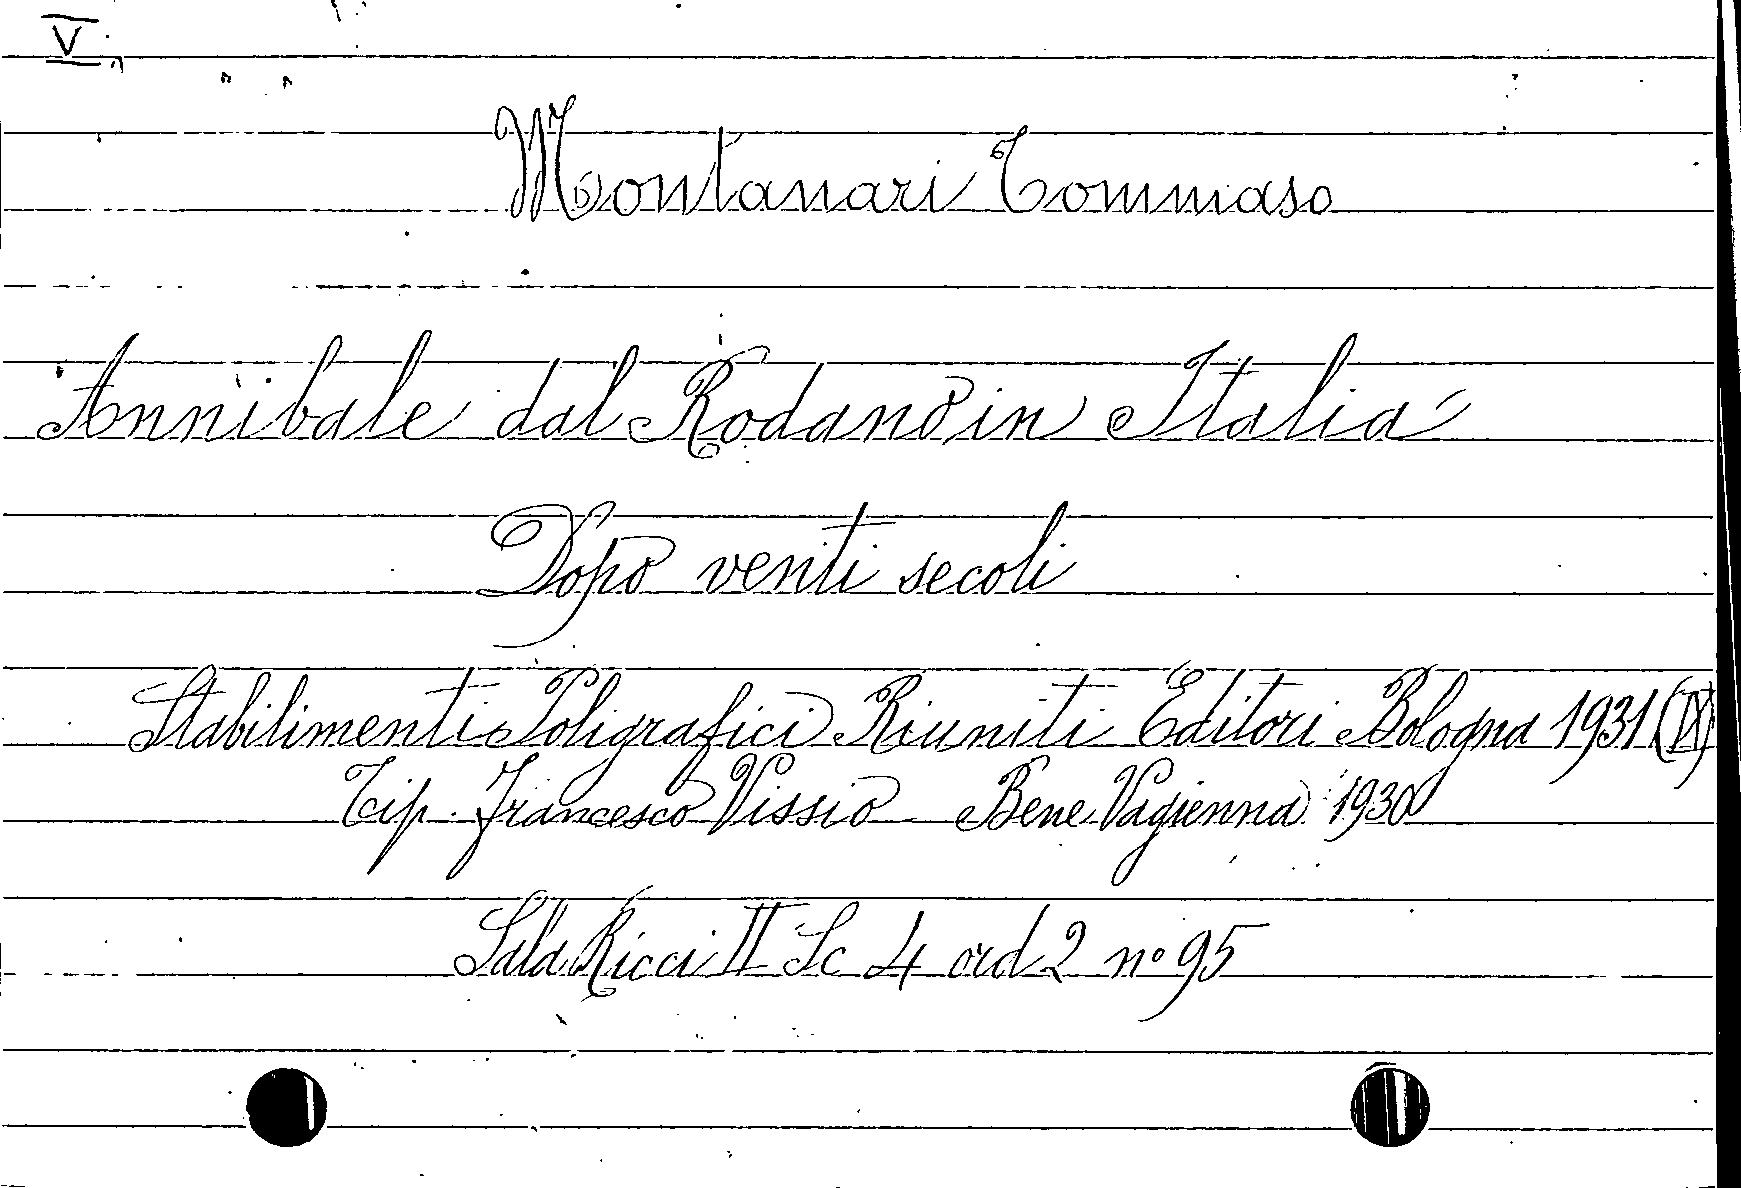 V
Montanari Tommaso
Annibale dal Rodano in Italia
Dopo venti secoli
Stabilimenti Poligrafici Riuniti Editori Bologna 1931 (IX)
Tip. Francesco Vissio Bene Vagienna 1930
Sala Ricci II Sc 4 ord 2 nº 95